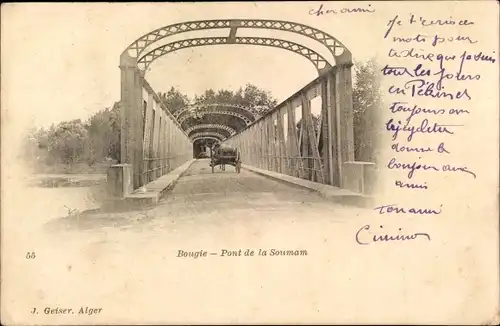 cher ami
Je t'écris ces
mots pour
te dire que je suis
tous les jours
en
toujours a
bicyclette
donne le
bonjour aux
amis
ton ami
55
Bougie – Pont de la Soumam
J. Geiser, Alger